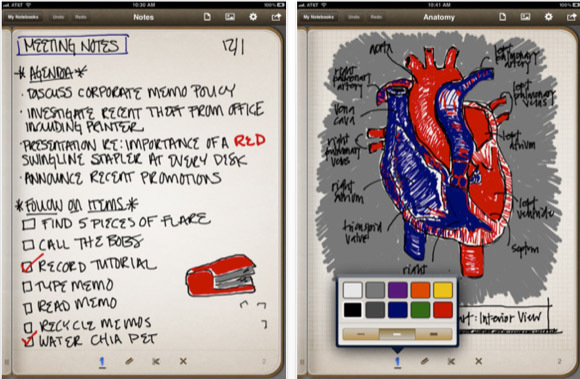 AT&T
10:30 AM
My Notebooks
Undo
Redo
Notes
MEETING NOTES
12/1
* AGENDA *
· DISCUSS CORPORATE MEMO POLICY
· INVESTIGATE RECENT THEFT FROM OFFICE
INCLUDING PRINTER
· PRESENTATION RE: IMPORTANCE OF A RED
SWINGLINE STAPLER AT EVERY DISK
· ANNOUNCE RECENT PROMOTIONS
* FOLLOW ON ITEMS *
FIND 5 PIECES OF FLARE
CALL THE BOBS
RECORD TUTORIAL
TYPE MEMO
READ MEMO
RECYCLE MEMOS
WATER CHIA PET
2
AT&T
10:41 AM
My Notebooks
Undo
Redo
Anatomy
aorta
left
pulmonary
artery
right
pulmonary
artery
left
pulmonary
veins
vena
cava
left
atrium
right
pulmonary
veins
right
atrium
left
ventricle
valve
septum
right
: Interior View
2